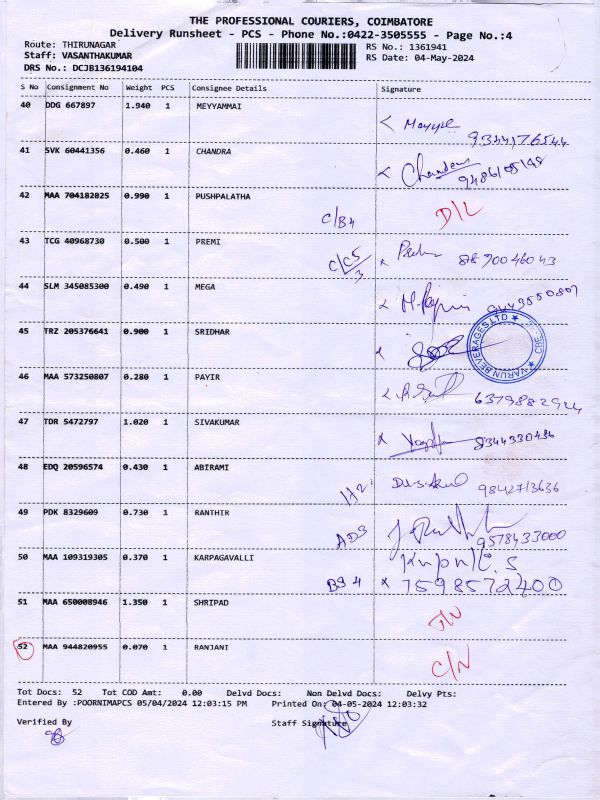 THE PROFESSIONAL COURIERS, COIMBATORE
Delivery Runsheet - PCS - Phone No.:0422-3505555 - Page No.:4
Route: THIRUNAGAR RS No.: 1361941
Staff: VASANTHAKUMAR RS Date: 04-May-2024
DRS No.: DCJB136194104
S No Consignment No Weight PCS Consignee Details Signature
40 DDG 667897 1.940 1 MEYYAMMAI
9344176544
41 SVK 60441356 0.460 1 CHANDRA
9486105148
42 MAA 704182825 0.990 1 PUSHPALATHA
C/B4 D/L
43 TCG 40968730 0.500 1 PREMI
C/C5/3 8890046043
44 SLM 345085300 0.490 1 MEGA
45 TRZ 205376641 0.900 1 SRIDHAR
VARUN BEVERAGES LTD ★ CBE ★
46 MAA 573250807 0.280 1 PAYIR
6379882924
47 TDR 5472797 1.020 1 SIVAKUMAR
8344330436
48 EDQ 20596574 0.430 1 ABIRAMI
9842713636
49 PDK 8329609 0.730 1 RANTHIR
AD3 9578433000
50 MAA 109319305 0.370 1 KARPAGAVALLI
B9 4 7598572400
51 MAA 650008946 1.350 1 SHRIPAD
52 MAA 944820955 0.070 1 RANJANI
C/N
Tot Docs: 52 Tot COD Amt: 0.00 Delvd Docs: Non Delvd Docs: Delvy Pts:
Entered By :POORNIMAPCS 05/04/2024 12:03:15 PM Printed On: 04-05-2024 12:03:32
Verified By Staff Signature